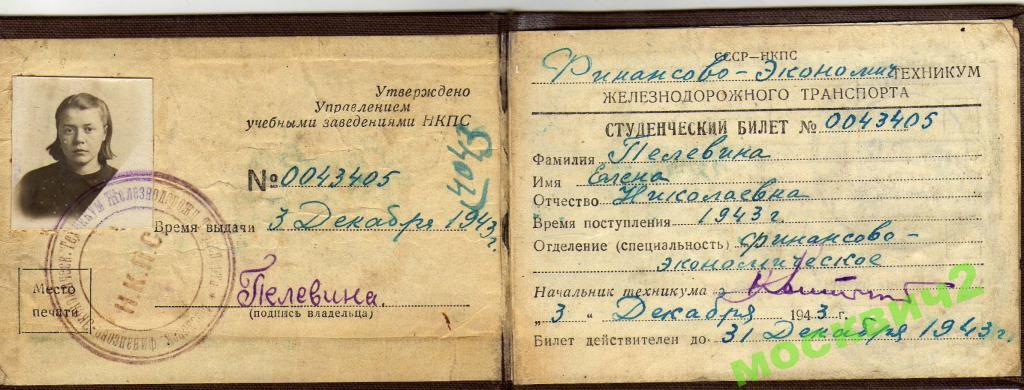 Утверждено
Управлением
учебными заведениями НКПС
№ 0043405
Время выдачи 3 Декабря 1943 г.
Место
печати
Н.К.П.С
Пелевина.
(подпись владельца)
СССР—НКПС
Финансово-Экономич ТЕХНИКУМ
ЖЕЛЕЗНОДОРОЖНОГО ТРАНСПОРТА
СТУДЕНЧЕСКИЙ БИЛЕТ № 0043405
Фамилия Пелевина
Имя Елена
Отчество Николаевна
Время поступления 1943 г.
Отделение (специальность) финансово-
экономическое
Начальник техникума
„3„ Декабря 1943 г.
Билет действителен до 31 Декабря 1943 г.
москвич2